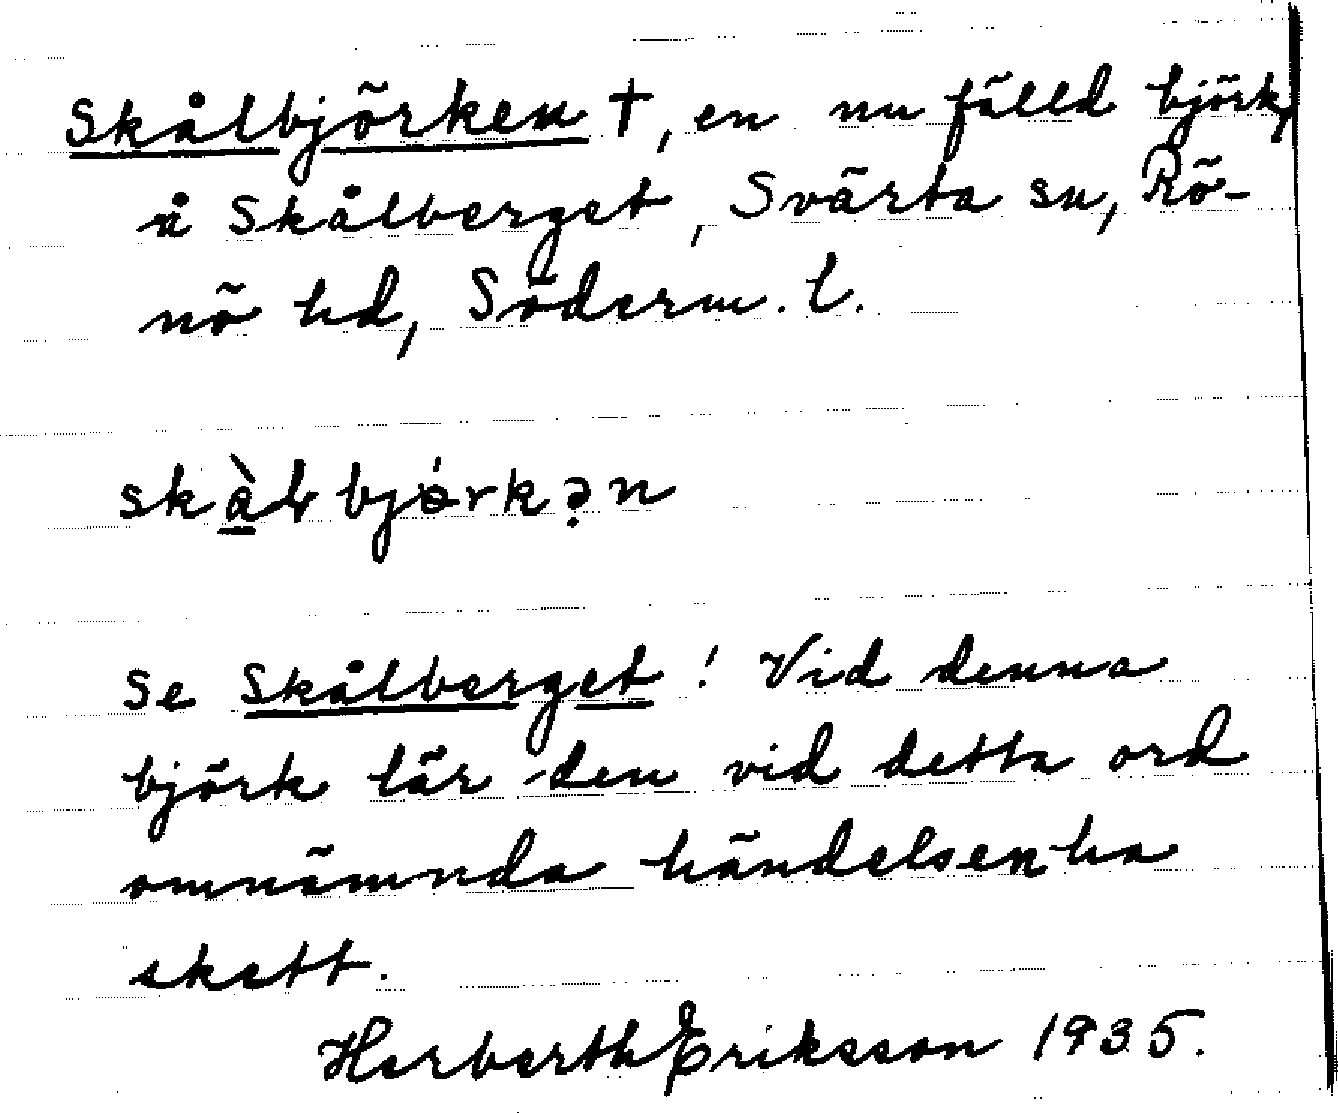 Skålbjörken †, en nu fälld björk,
å Skålberget, Svärta sn, Rö-
nö hd, Söderm. l.
skà̲ƚbjǿrkə̣n
Se Skålberget! Vid denna
björk lär den vid detta ord
omnämnda händelsen ha
skett.
Herberth Eriksson 1935.